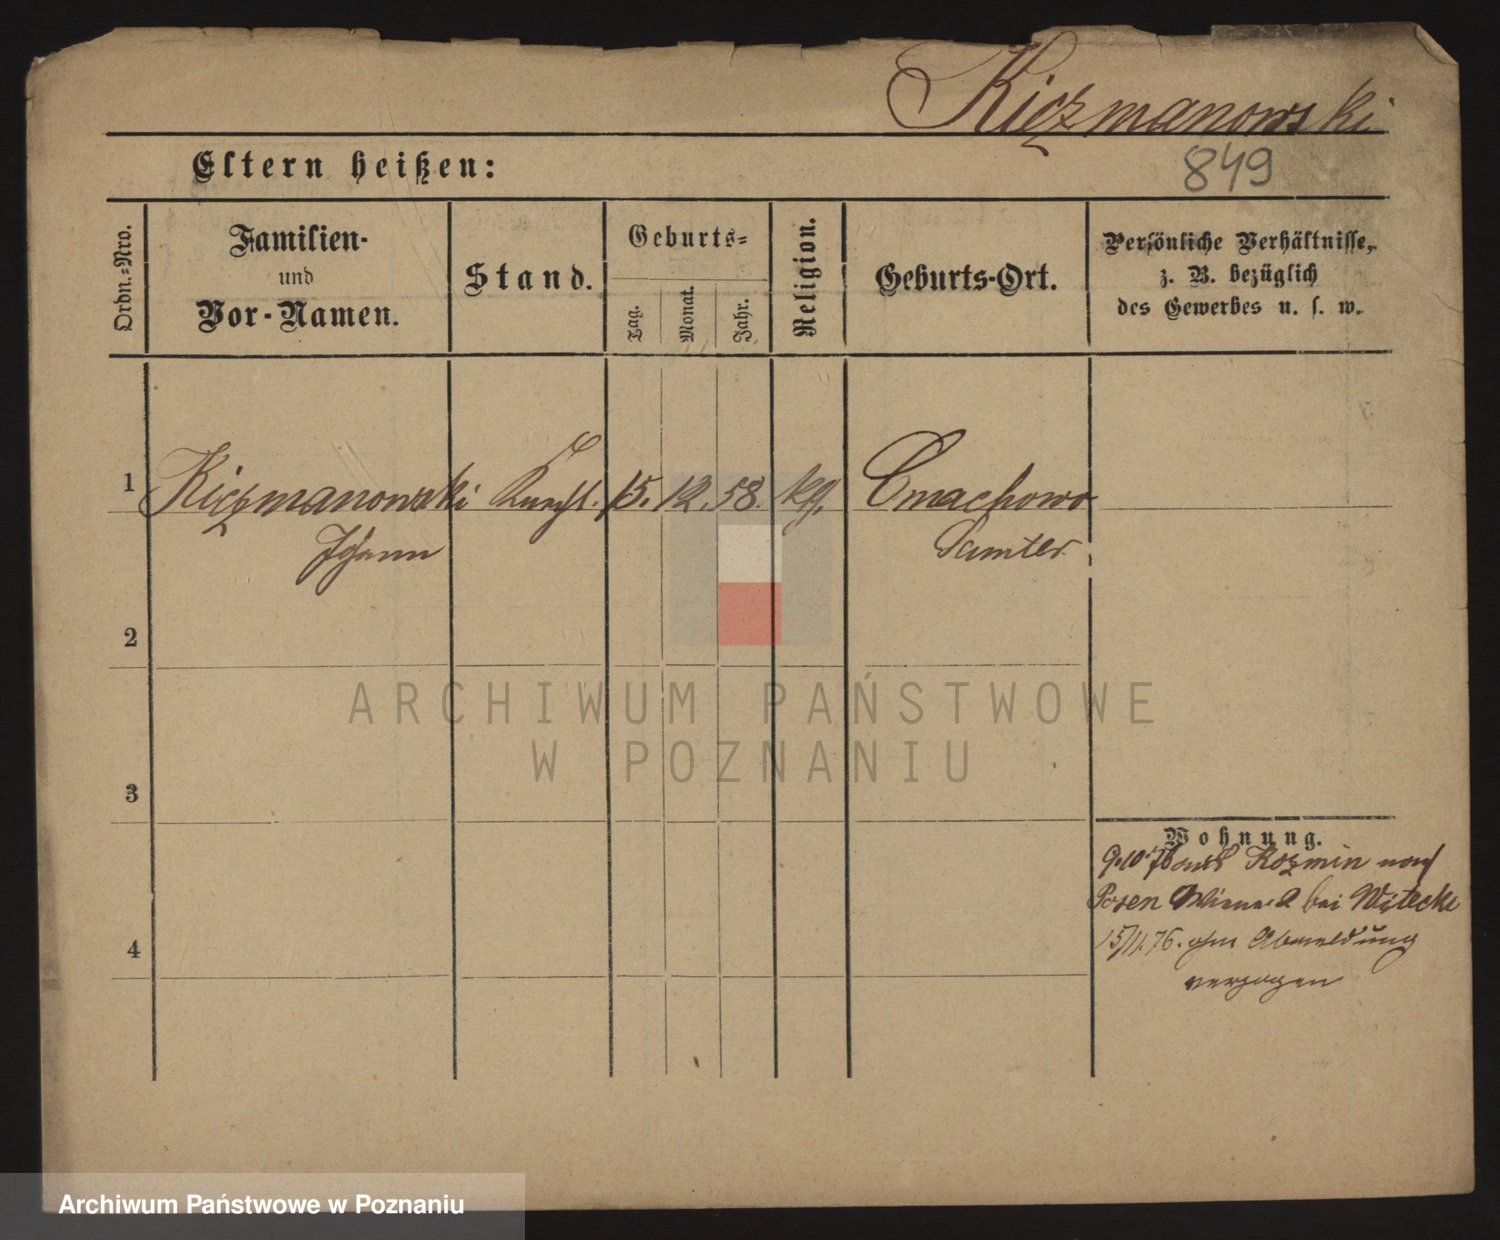 Kiczmanowski
849
Eltern heißen:
Ordn.-Nro.
Familien-
und
Vor-Namen.
Stand.
Geburts-
Tag.
Monat.
Jahr.
Religion.
Geburts-Ort.
Persönliche Verhältnisse,
z. B. bezüglich
des Gewerbes u. s. w.
1 Kiczmanowski Knecht. 15. 12. 58. kg. Cmachowo
Johann Samter
2
3
4
Wohnung.
9.10.76 aus Kozmin nach
Posen bei Witecki
15/11.76. ohne Abmeldung
verzogen
ARCHIWUM PAŃSTWOWE
W POZNANIU
Archiwum Państwowe w Poznaniu